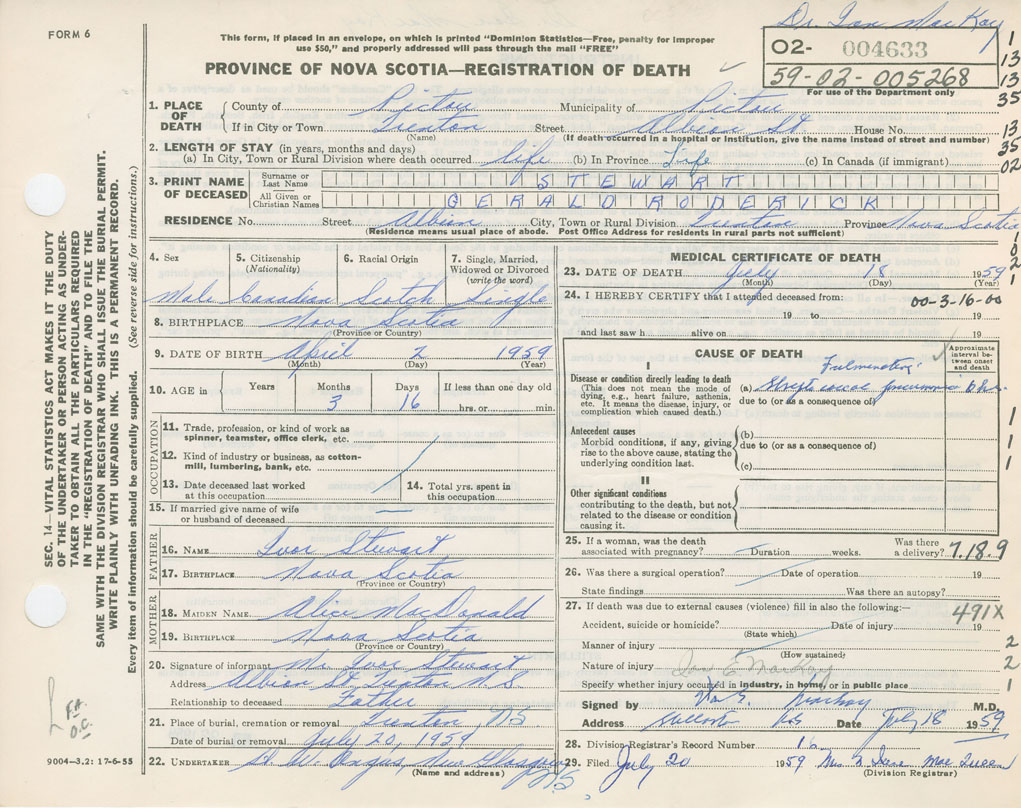 Dr. Ian MacKay
FORM 6
This form, if placed in an envelope, on which is printed "Dominion Statistics—Free, penalty for improper
use $50," and properly addressed will pass through the mail "FREE"
02- 004633
59-02-005268
For use of the Department only
PROVINCE OF NOVA SCOTIA—REGISTRATION OF DEATH
1
13
13
35
13
35
02
1. PLACE OF DEATH
County of Pictou Municipality of Pictou
If in City or Town Trenton Street Albion St House No.
(Name) (If death occurred in a hospital or institution, give the name instead of street and number)
2. LENGTH OF STAY (in years, months and days)
(a) In City, Town or Rural Division where death occurred life (b) In Province Life (c) In Canada (if immigrant)
3. PRINT NAME OF DECEASED
Surname or Last Name STEWART
All Given or Christian Names GERALD RODERICK
RESIDENCE No. Street Albion City, Town or Rural Division Trenton Province Nova Scotia
(Residence means usual place of abode. Post Office Address for residents in rural parts not sufficient)
4. Sex 5. Citizenship (Nationality) 6. Racial Origin 7. Single, Married, Widowed or Divorced (write the word)
Male Canadian Scotch Single
8. BIRTHPLACE Nova Scotia
(Province or Country)
9. DATE OF BIRTH April 2 1959
(Month) (Day) (Year)
10. AGE in Years Months Days If less than one day old
3 16 hrs. or min.
OCCUPATION
11. Trade, profession, or kind of work as
spinner, teamster, office clerk, etc.
12. Kind of industry or business, as cotton-
mill, lumbering, bank, etc.
13. Date deceased last worked
at this occupation
14. Total yrs. spent in
this occupation
15. If married give name of wife
or husband of deceased
FATHER
16. NAME Ivor Stewart
17. BIRTHPLACE Nova Scotia
(Province or Country)
MOTHER
18. MAIDEN NAME Alice MacDonald
19. BIRTHPLACE Nova Scotia
(Province or Country)
20. Signature of informant Mr Ivor Stewart
Address Albion St Trenton N.S
Relationship to deceased Father
21. Place of burial, cremation or removal Trenton NS
Date of burial or removal July 20, 1959
22. UNDERTAKER H. W. Angus, New Glasgow
N.S
(Name and address)
MEDICAL CERTIFICATE OF DEATH
1
0
2
1
23. DATE OF DEATH July 18 1959
(Month) (Day) (Year)
24. I HEREBY CERTIFY that I attended deceased from: 00-3-16-00
19 to 19
and last saw h alive on 19
CAUSE OF DEATH
Approximate interval between onset and death
I
Disease or condition directly leading to death
(This does not mean the mode of
dying, e.g., heart failure, asthenia,
etc. It means the disease, injury, or
complication which caused death.)
(a) pneumonia
due to (or as a consequence of)
Antecedent causes
Morbid conditions, if any, giving
rise to the above cause, stating the
underlying condition last.
(b)
due to (or as a consequence of)
(c)
1
1
1
II
Other significant conditions
contributing to the death, but not
related to the disease or condition
causing it.
25. If a woman, was the death
associated with pregnancy? Duration weeks. Was there a delivery? 7.18.9
26. Was there a surgical operation? Date of operation 19
State findings Was there an autopsy?
27. If death was due to external causes (violence) fill in also the following:—
491X
Accident, suicide or homicide? Date of injury 19
(State which)
Manner of injury 2
(How sustained)
Nature of injury Ian E. MacKay 2
Specify whether injury occured in industry, in home, or in public place 1
Signed by Ian E. MacKay M.D.
Address NS Date July 18 1959
28. Division Registrar's Record Number
29. Filed July 20 1959 Mrs
(Division Registrar)
SEC. 14—VITAL STATISTICS ACT MAKES IT THE DUTY
OF THE UNDERTAKER OR PERSON ACTING AS UNDER-
TAKER TO OBTAIN ALL THE PARTICULARS REQUIRED
IN THE "REGISTRATION OF DEATH" AND TO FILE THE
SAME WITH THE DIVISION REGISTRAR WHO SHALL ISSUE THE BURIAL PERMIT.
WRITE PLAINLY WITH UNFADING INK. THIS IS A PERMANENT RECORD.
Every item of information should be carefully supplied. (See reverse side for instructions.)
F.A.
D.C.
9004—3.2: 17-6-55